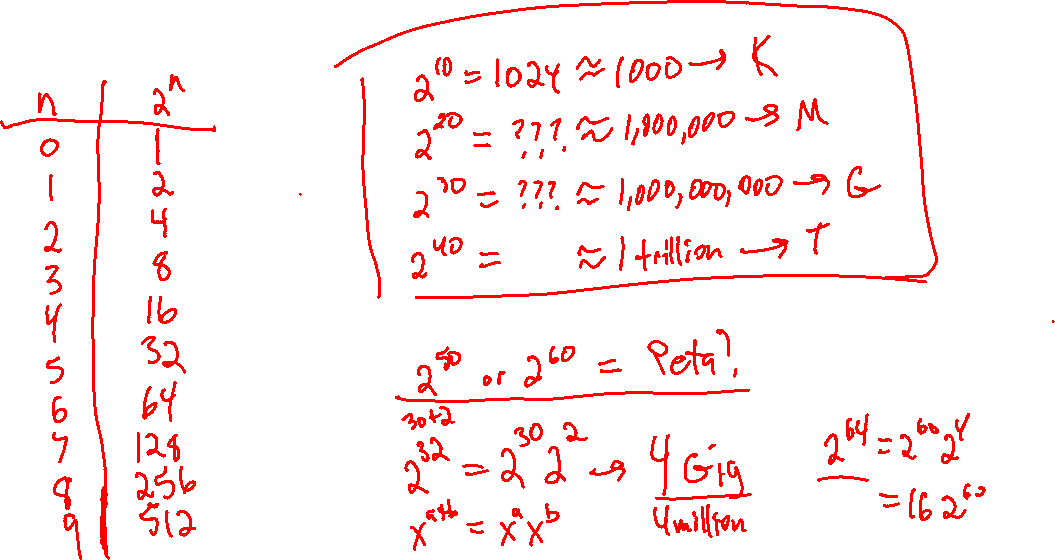 n 2^n
0 1
1 2
2 4
3 8
4 16
5 32
6 64
7 128
8 256
9 512
2^10 = 1024 ≈ 1000 → K
2^20 = ??? ≈ 1,000,000 → M
2^30 = ??? ≈ 1,000,000,000 → G
2^40 = ≈ 1 trillion → T
2^50 or 2^60 = Peta?
30+2
2^32 = 2^30 2^2 → 4 Gig
4 million
x^a+b = x^a x^b
2^64 = 2^60 2^4
= 16 2^60